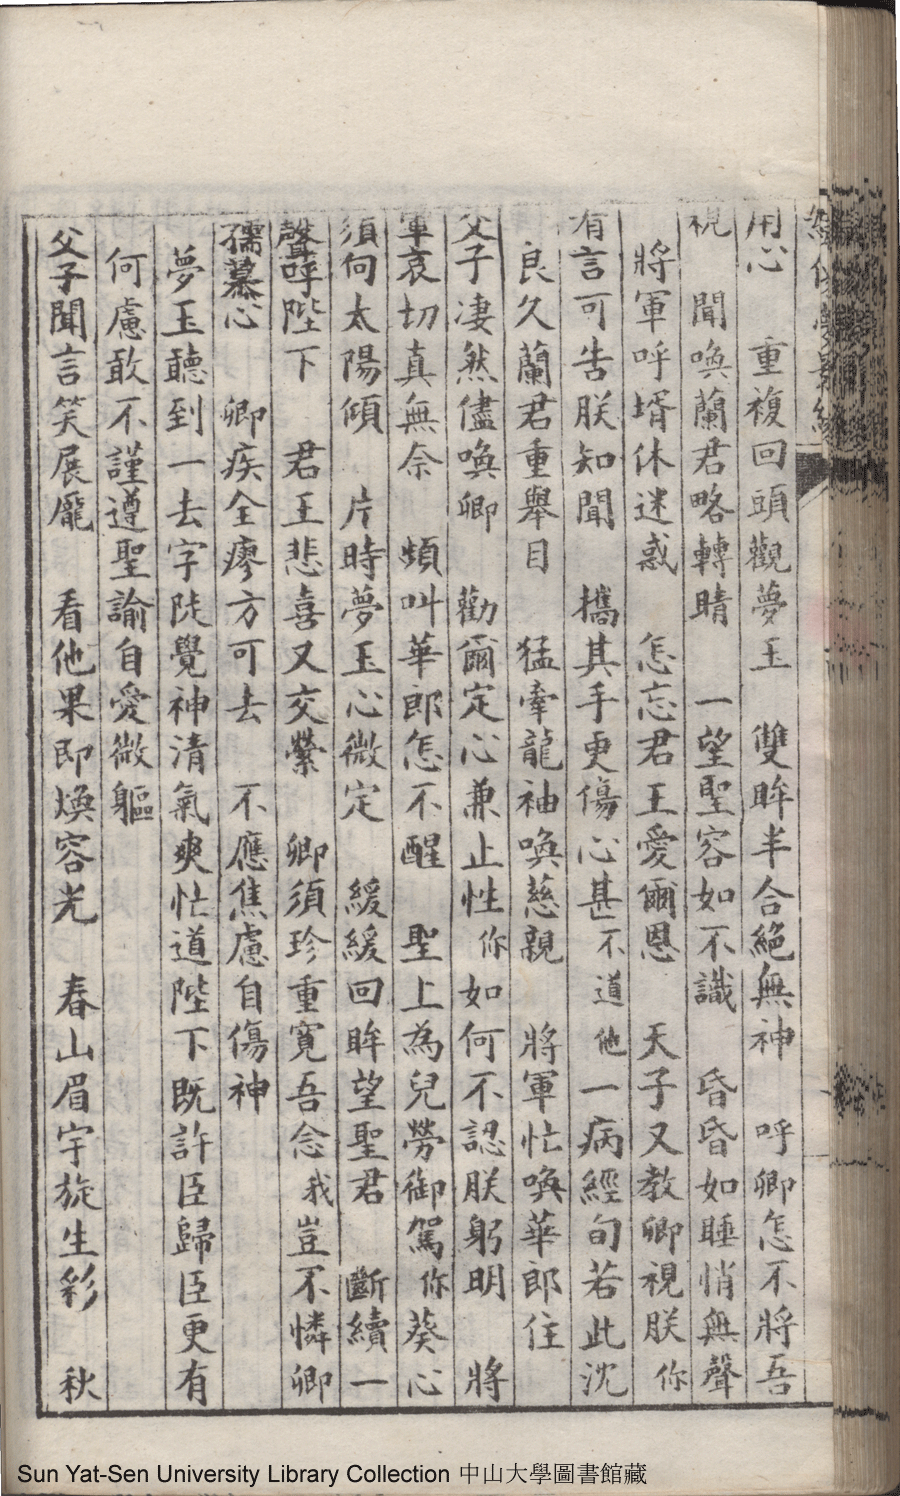 用心　重複回頭觀夢玉　雙眸半合絕無神　呼卿怎不將吾
視　聞喚蘭君略轉睛　一望聖容如不識　昏昏如睡悄無聲
將軍呼壻休迷惑　怎忘君王愛爾恩　天子又教卿視朕你
有言可告朕知聞　攜其手更傷心甚不道他一病經旬若此沈
良久蘭君重舉目　猛牽龍袖喚慈親　將軍忙喚華郎住
父子淒然儘喚卿　勸爾定心兼止性你如何不認朕躬明　將
軍哀切真無奈　頻叫華郎怎不醒　聖上為兒勞御駕你葵心
須向太陽傾　片時夢玉心微定　緩緩回眸望聖君　斷續一
聲呼陛下　君王悲喜又交縈　卿須珍重寬吾念我豈不憐卿
孺慕心　卿疾全瘳方可去　不應焦慮自傷神
夢玉聽到一去字陡覺神清氣爽忙道陛下既許臣歸臣更有
何慮敢不謹遵聖諭自愛微軀
父子聞言笑展龐　看他果即煥容光　春山眉宇旋生彩　秋
Sun Yat-Sen University Library Collection 中山大學圖書館藏